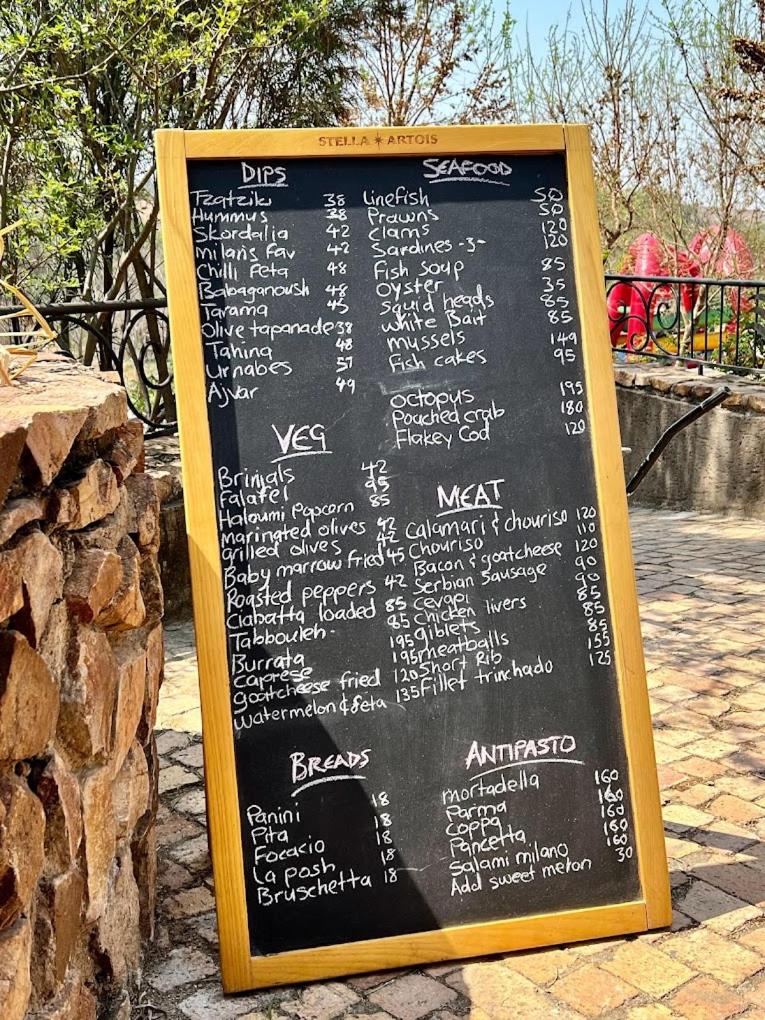 STELLA ARTOIS
DIPS
Tzatziki 38
Hummus 38
Skordalia 42
Milaris Fav 42
Chilli Feta 48
Babaganoush 48
Tarama 45
Olive tapanade 38
Tahina 48
Urnabes 57
Ajvar 49
SEAFOOD
Linefish 50
Prawns 50
Clams 120
Sardines -3- 120
Fish soup 85
Oyster 35
Squid heads 85
White Bait 85
Mussels 149
Fish cakes 95
Octopus 195
Poached crab 180
Flakey Cod 120
VEG
Brinjals 42
Falafel 45
Haloumi Popcorn 85
Maringted olives 42
Grilled olives 42
Baby marrow fried 45
Roasted peppers 42
Ciabatta loaded 85
Tabbouleh 85
Burrata 195
Caprese 195
Goatcheese fried 120
Watermelon & feta 135
MEAT
Calamari & chouriso 120
Chouriso 110
Bacon & goatcheese 120
Serbian Sausage 90
Cevapi 90
Chicken livers 85
Giblets 85
Meatballs 85
Short Rib 155
Fillet trinchado 125
BREADS
Panini 18
Pita 18
Focacio 18
La posh 18
Bruschetta 18
ANTIPASTO
Mortadella 160
Parma 160
Coppa 160
Pancetta 180
Salami milano 160
Add sweet melon 30